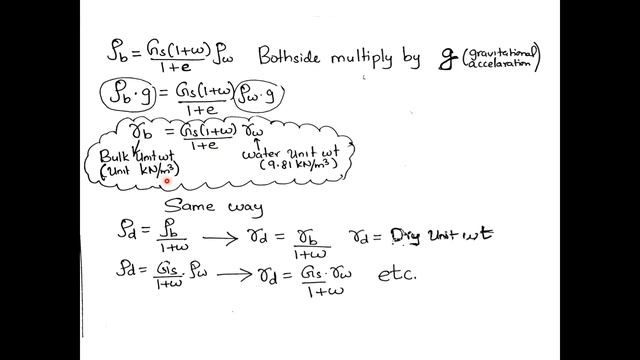 ρb = Gs(1+ω)/1+e ρω Bothside multiply by g (gravitational accelaration)
ρb·g = Gs(1+ω)/1+e ρω·g
γb = Gs(1+ω)/1+e γω
Bulk Unit wt (Unit kN/m³) Water Unit wt (9.81 kN/m³)
Same way
ρd = ρb/1+ω → γd = γb/1+ω γd = Dry Unit wt
ρd = Gs/1+ω · ρω → γd = Gs·γω/1+ω etc.